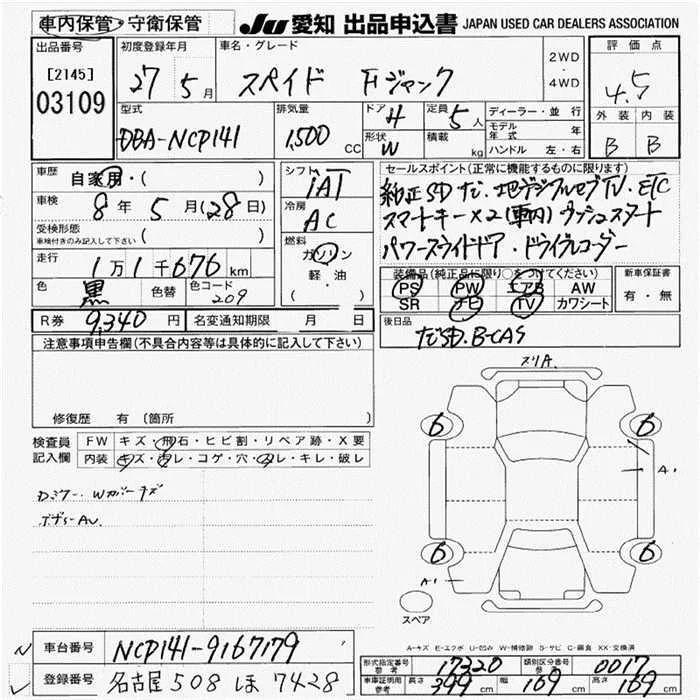 車内保管・守衛保管
JU 愛知 出品申込書 JAPAN USED CAR DEALERS ASSOCIATION
出品番号
[2145]
03109
初度登録年月
27 5月
車名・グレード
スペイド Fジャック
2WD
・
4WD
評価点
4.5
外装 内装
B B
型式
DBA-NCP141
排気量
1,500 CC
ドア 4
形状 W
定員 5人
積載 kg
ディーラー・並行
モデル年式 年
ハンドル 左・右
車歴
自家用・( )
車検
8年 5月(28日)
受検形態
車検付きのみ記入して下さい ( )
走行
1万1千676km
色
黒
色替
色コード
209
シフト
iAT
冷房
AC
燃料
ガソリン
軽・油
・( )
セールスポイント(正常に機能するものに限ります)
純正SDナビ・地デジフルセグTV・ETC
スマートキー×2(車内)プッシュスタート
パワースライドドア・ドライブレコーダー
装備品(純正品に限り○をつけてください)
PS PW エアB AW
SR ナビ TV カワシート
新車保証書
有・無
R券 9,340円 名変通知期限 月 日
後日品
ナビSD.B-CAS
注意事項申告欄(不具合内容等は具体的に記入して下さい)
修復歴 有(箇所
検査員
記入欄
FW キズ・飛石・ヒビ割・リペア跡・X要
内装 キズ・汚レ・コゲ・穴・スレ・キレ・破レ
Dミラー Wカバーキズ
スリA.
6 6
A.
6 6
A1
スペア
A-キズ E-エクボ U-凹み W-補修跡 S-サビ C-腐食 XX-交換済
車台番号 NCP141-9167179
登録番号 名古屋508 ほ 7428
形式指定番号
参考 17320
類別区分番号
参考 0017
車庫証明用
参考 長さ 399cm 幅 169cm 高さ 169cm